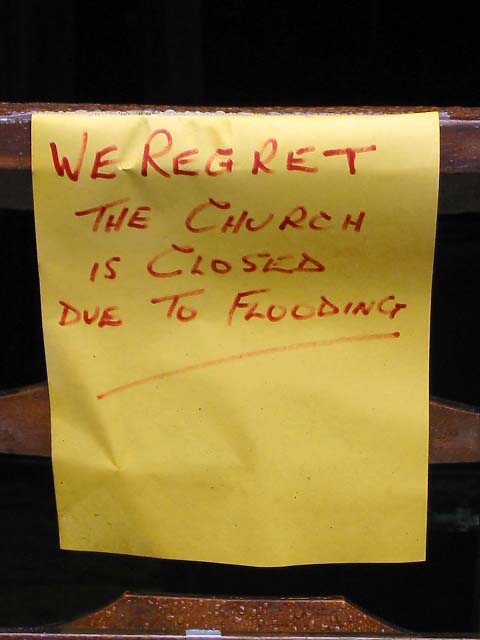 WE REGRET
THE CHURCH
IS CLOSED
DUE TO FLOODING